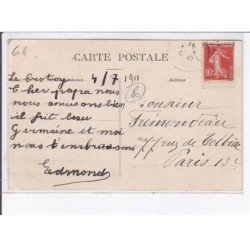 606
CARTE POSTALE
Le Crotoy 4/7 1911
Adresse
Cher papa nous
nous amusons bien
il fait beau
Germaine et moi
nous t'embrassons
Edmond
Monsieur
rue de Tolbiac
Paris 13e
10
80